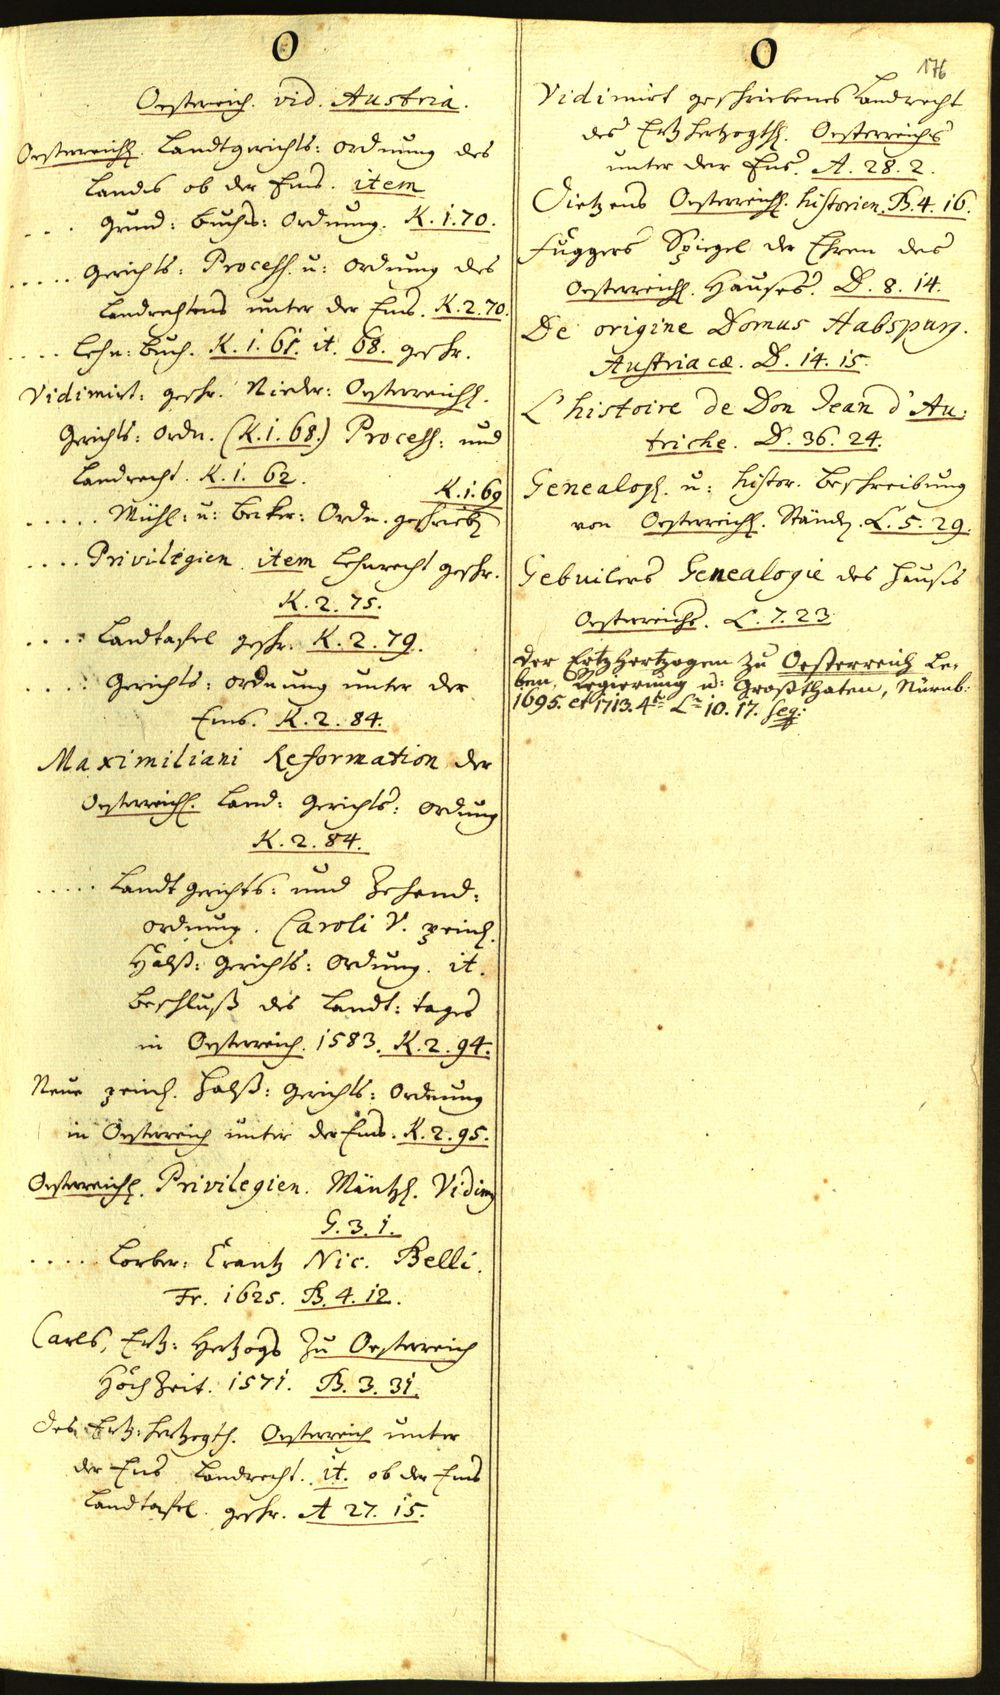 O
Oesterreich. vid. Austria.
Oesterreichl. Landtgerichts: ordnung des
Landes ob der Enns. item
... Grund: buchs: Ordnung. K. 1. 70.
..... Gerichts: Process. u: ordnung des
Landrechtens unter der Ens. K. 2. 70.
.... Lehn: buch. K. 1. 61. it. 68. geschr.
Vidimirt: geschr. Nieder: Oesterreichl.
Gerichts: Ordn. (K. 1. 68.) Process: und
Landrecht. K. 1. 62.
K. 1. 69
..... Mühl: u: becker: Ordn. geschrieb
.... Privilegien. item Lehnrecht geschr.
K. 2. 75.
.... Landtafel geschr. K. 2. 79.
.... Gerichts: ordnung unter der
Ens. K. 2. 84.
Maximiliani Reformation der
Oesterreichl. Land: Gerichts: ordnung
K. 2. 84.
..... Landt gerichts: und Zehend:
ordnung. Caroli V. peinl.
Halß: Gerichts: Ordnung. it.
beschluß des Landt: tages
in Oesterreich. 1583. K. 2. 94.
Neue peinl. Halß: Gerichts: Ordnung
in Oesterreich unter der Ens. K. 2. 95.
Oesterreichl. Privilegien. Müntzl. Vidim
G. 3. 1.
..... Lorber: Crantz Nic. Belli.
Fr. 1625. B. 4. 12.
Carls, Ertz: Hertzogs zu Oesterreich
HochZeit. 1571. B. 3. 31.
des Ertz: hertzogth. Oesterreich unter
der Ens Landrecht. it. ob der Ens
Landtafel. geschr. A 27. 15.
O
176
Vidimirt geschriebenes Landrecht
des Ertz hertzogth. Oesterreichs
unter der Ens. A. 28. 2.
Dietzens Oesterreichl. historien. B. 4. 16.
Fuggers Spiegel der Ehren des
Oesterreichl. Hauses. D. 8. 14.
De origine Domus Habspurg.
Austriacæ. D. 14. 15.
L'histoire de Don Jean d'Au:
triche. D. 36. 24.
Genealog. u: histor. beschreibung
von Oesterreichl. Ständ. L. 5. 29.
Gebwilers Genealogie des Hauses
Oesterreichs. L. 7. 23
der Ertzhertzogen zu Oesterreich Le:
ben, Regierung u: Großthaten, Nürnb:
1695. et 1713. 4to Ln 10. 17. seq: